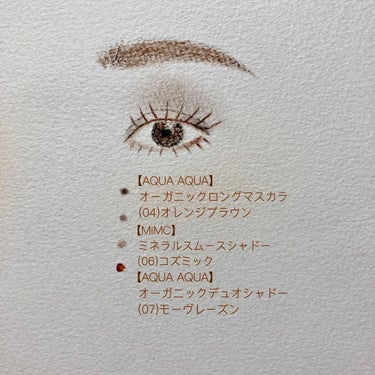 【AQUA AQUA】
オーガニックロングマスカラ
(04)オレンジブラウン
【MIMC】
ミネラルスムースシャドー
(06)コズミック
【AQUA AQUA】
オーガニックデュオシャドー
(07)モーヴレーズン